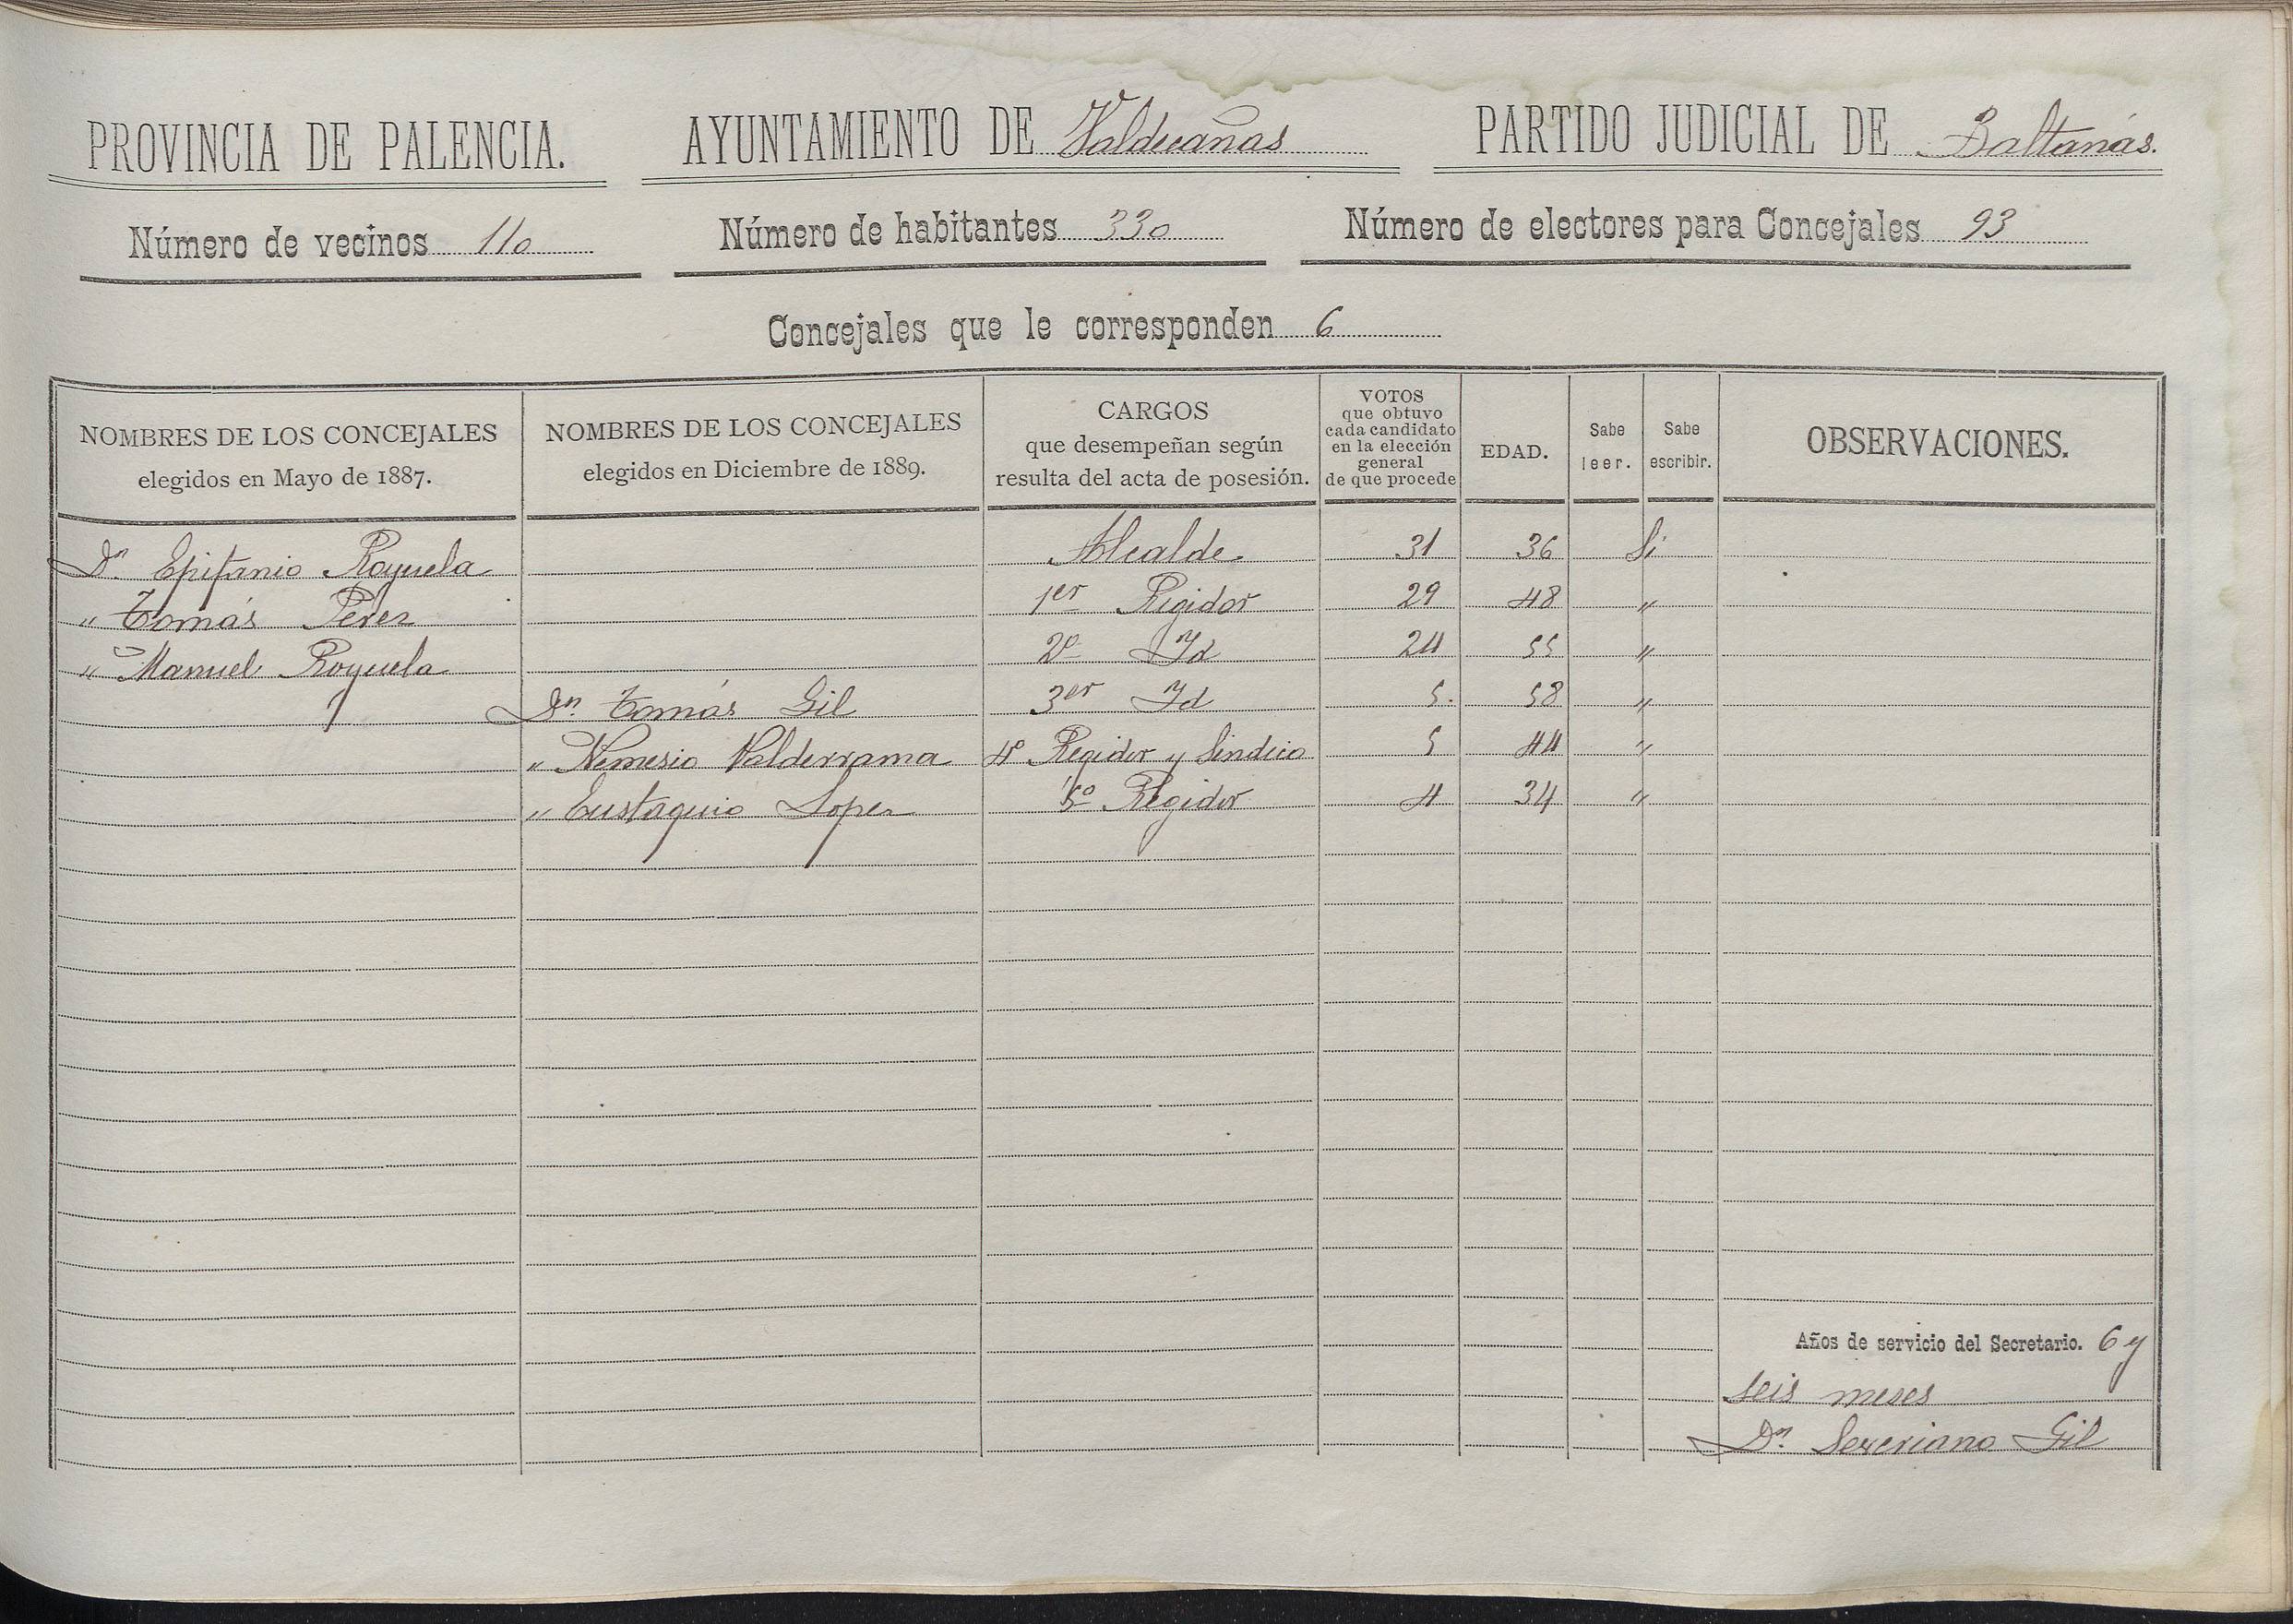 PROVINCIA DE PALENCIA. AYUNTAMIENTO DE Valdecañas PARTIDO JUDICIAL DE Baltanás.
Número de vecinos 110 Número de habitantes 330 Número de electores para Concejales 93
Concejales que le corresponden 6
NOMBRES DE LOS CONCEJALES
elegidos en Mayo de 1887.
NOMBRES DE LOS CONCEJALES
elegidos en Diciembre de 1889.
CARGOS
que desempeñan según
resulta del acta de posesión.
VOTOS
que obtuvo
cada candidato
en la elección
general
de que procede
EDAD.
Sabe
leer.
Sabe
escribir.
OBSERVACIONES.
Dn. Epifanio Royuela Alcalde 31 36 Si
" Tomás Pérez 1er Regidor 29 48 "
" Manuel Royuela 2º Id 24 55 "
Dn. Tomás Gil 3er Id 5. 58 "
" Nemesio Valderrama 4º Regidor y Sindico 5 44 "
" Eustaquio Lopez 5º Regidor 4 34 "
Años de servicio del Secretario. 6 y
seis meses
Dn. Severiano Gil